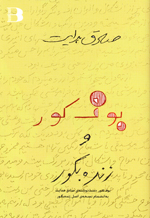 B
صادق هدایت
بوف کور
و
زنده بگور